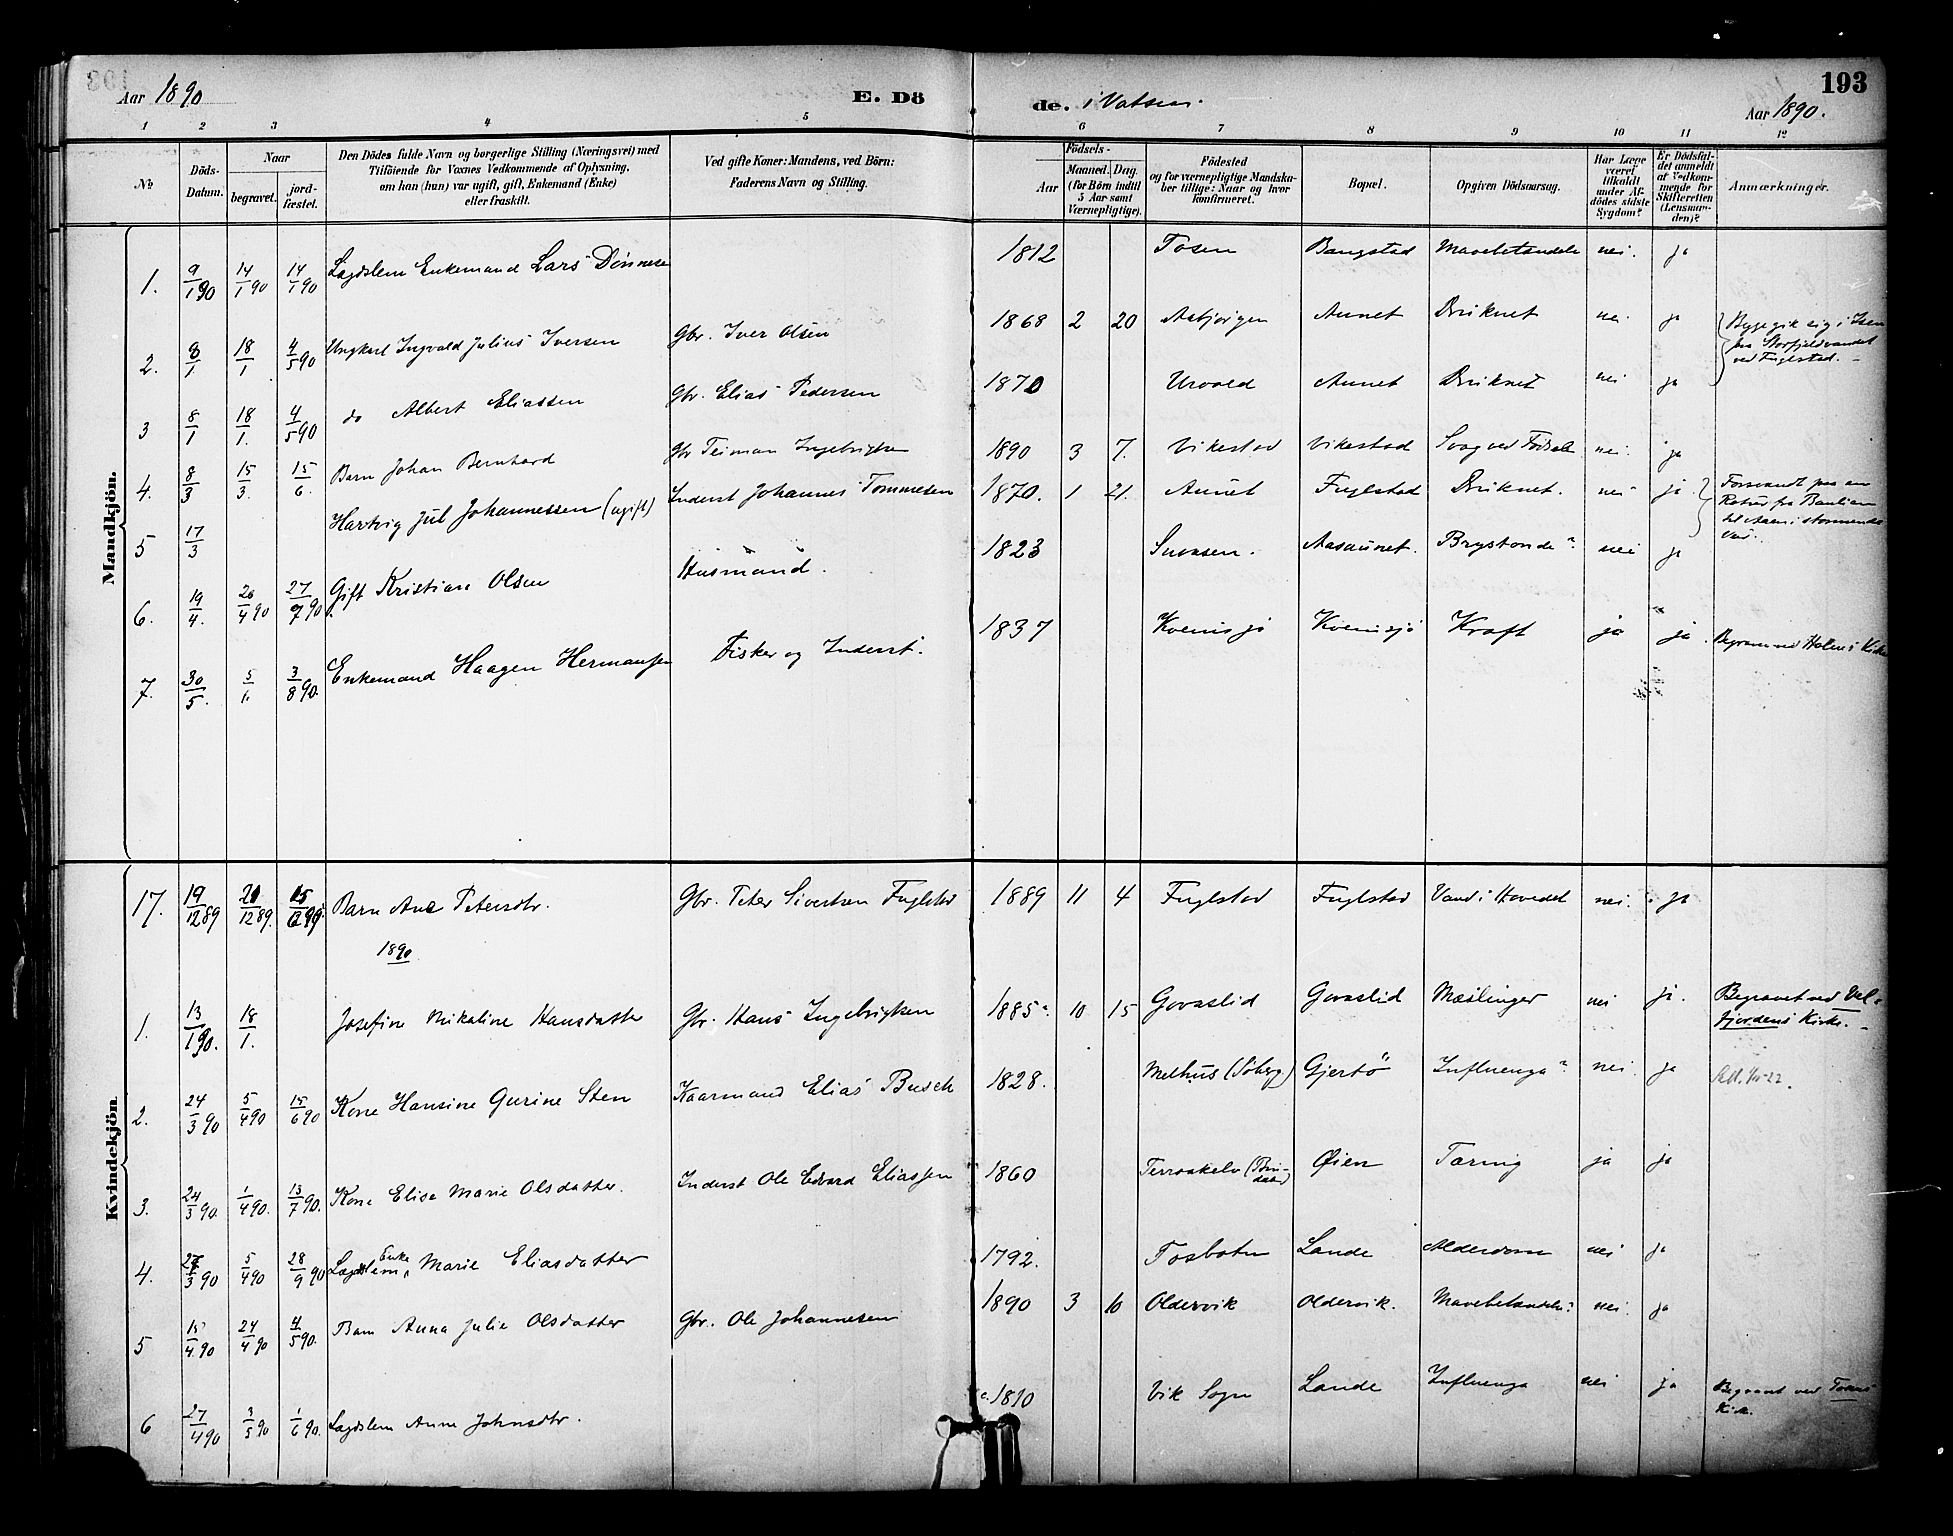 193
Aar 1890
E. Dö
de. i Vatsaas.
Aar 1890.
1 2 3 4 5 6 7 8 9 10 11 12
No
Döds-Datum.
Naar
begravet.
jord-fæstet.
Den Dödes fulde Navn og borgerlige Stilling (Næringsvei) med
Tilföiende for Voxnes Vedkommende af Oplysning,
om han (hun) var ugift, gift, Enkemand (Enke)
eller fraskilt.
Ved gifte Koner: Mandens, ved Börn:
Faderens Navn og Stilling.
Födsels-
Aar
Maaned. Dag.
(for Börn indtil
5 Aar samt
Værnepligtige).
Födested
og for værnepligtige Mandska-
ber tillige: Naar og hvor
konfirmeret.
Bopæl.
Opgiven Dödsaarsag.
Har Læge
været
tilkaldt
under Af-
dödes sidste
Sygdom?
Er Dödsfal-
det anmeldt
af Vedkom-
mende for
Skifteretten
(Lensman-
den)?
Anmærkninger.
Mandkjön.
1. 9/1 90 14/1 90 14/1 90 Lægdslem Enkemand Lars Dönnesen 1812 Tosen Bangstad Mavebetændelse nei. ja
2. 8/1 18/1 4/5 90 Ungkarl Ingvald Julius Iversen Gbr. Iver Olsen 1868 2 20 Aabjörgen Aunet Druknet nei. ja Begge gik sig i Isen
paa Storfjeldvandet
ved Fuglstad.
3 8/1 18/1. 4/5 90 do Albert Eliassen Gbr. Elias Pedersen 1870 Urvold Aunet Druknet nei ja
4. 8/3 15/3. 15/6. Barn Johan Bernhard Gbr Teiman Ingebrigtsen 1890 3 7. Vikestad Vikestad Svag ved Födsel nei. ja
5 17/3 Hartvig Jul Johannessen (ugift) Inderst Johannes Tommesen 1870. 1 21. Aunet Fuglstad Druknet. nei ja Forsvandt paa en
Retur fra
til i stormende
Veir.
6. 19/4. 26/4 90 27/7 90. Gift Kristian Olsen Husmand. 1823 Aasaunet. Brystonde? nei ja
7. 30/5. 5/6. 3/8 90. Enkemand Haagen Hermansen Fisker og Inderst. 1837 Kvemsjö Kvemsjö Kræft ja ja. Begraven ved Kirke
Kvindekjön.
17. 19/12 89 21/12 89. 15/6 90 Barn Ane Petersdtr. Gbr. Peter Sivertsen Fuglstad 1889 11 4 Fuglstad Fuglstad Vand i Hovedet nei. ja
1890
1. 13/1 90. 18/1. Josefine Nikoline Hansdatter Gbr. Hans Ingebrigtsen 1885 10 15 Govaslid Govaslid Mæslinger nei ja. Begravet ved Vel-
fjordens Kirke.
2. 24/3 90 5/4 90 15/6 90 Kone Hansine Gurine Sten Kaarmand Elias Busch 1828. Melhus (Söberg) Gjertö Influenza? nei. ja
3. 24/3 90. 1/4 90. 13/7 90. Kone Elise Marie Olsdatter. Inderst Ole Edvard Eliassen 1860 Terraakelv (Bin-
dalen) Øien Tæring ja ja
4. 27/3 90 5/4 90 28/9 90 Lægdslem, Enke Marie Eliasdatter 1792. Tosboten Lande Alderdom nei ja
5 15/4. 90 24/4 90 4/5 90. Barn Anna Julie Olsdatter Gbr. Ole Johannesen 1890 3 10 Oldervik Oldervik. Mavebetændelse? nei. ja
6 27/4 90 3/5 90 1/6 90. Lægdslem Anne Johnsdtr. c. 1810 Vik Sogn Lande Influenza nei ja Begravet ved Kirke.